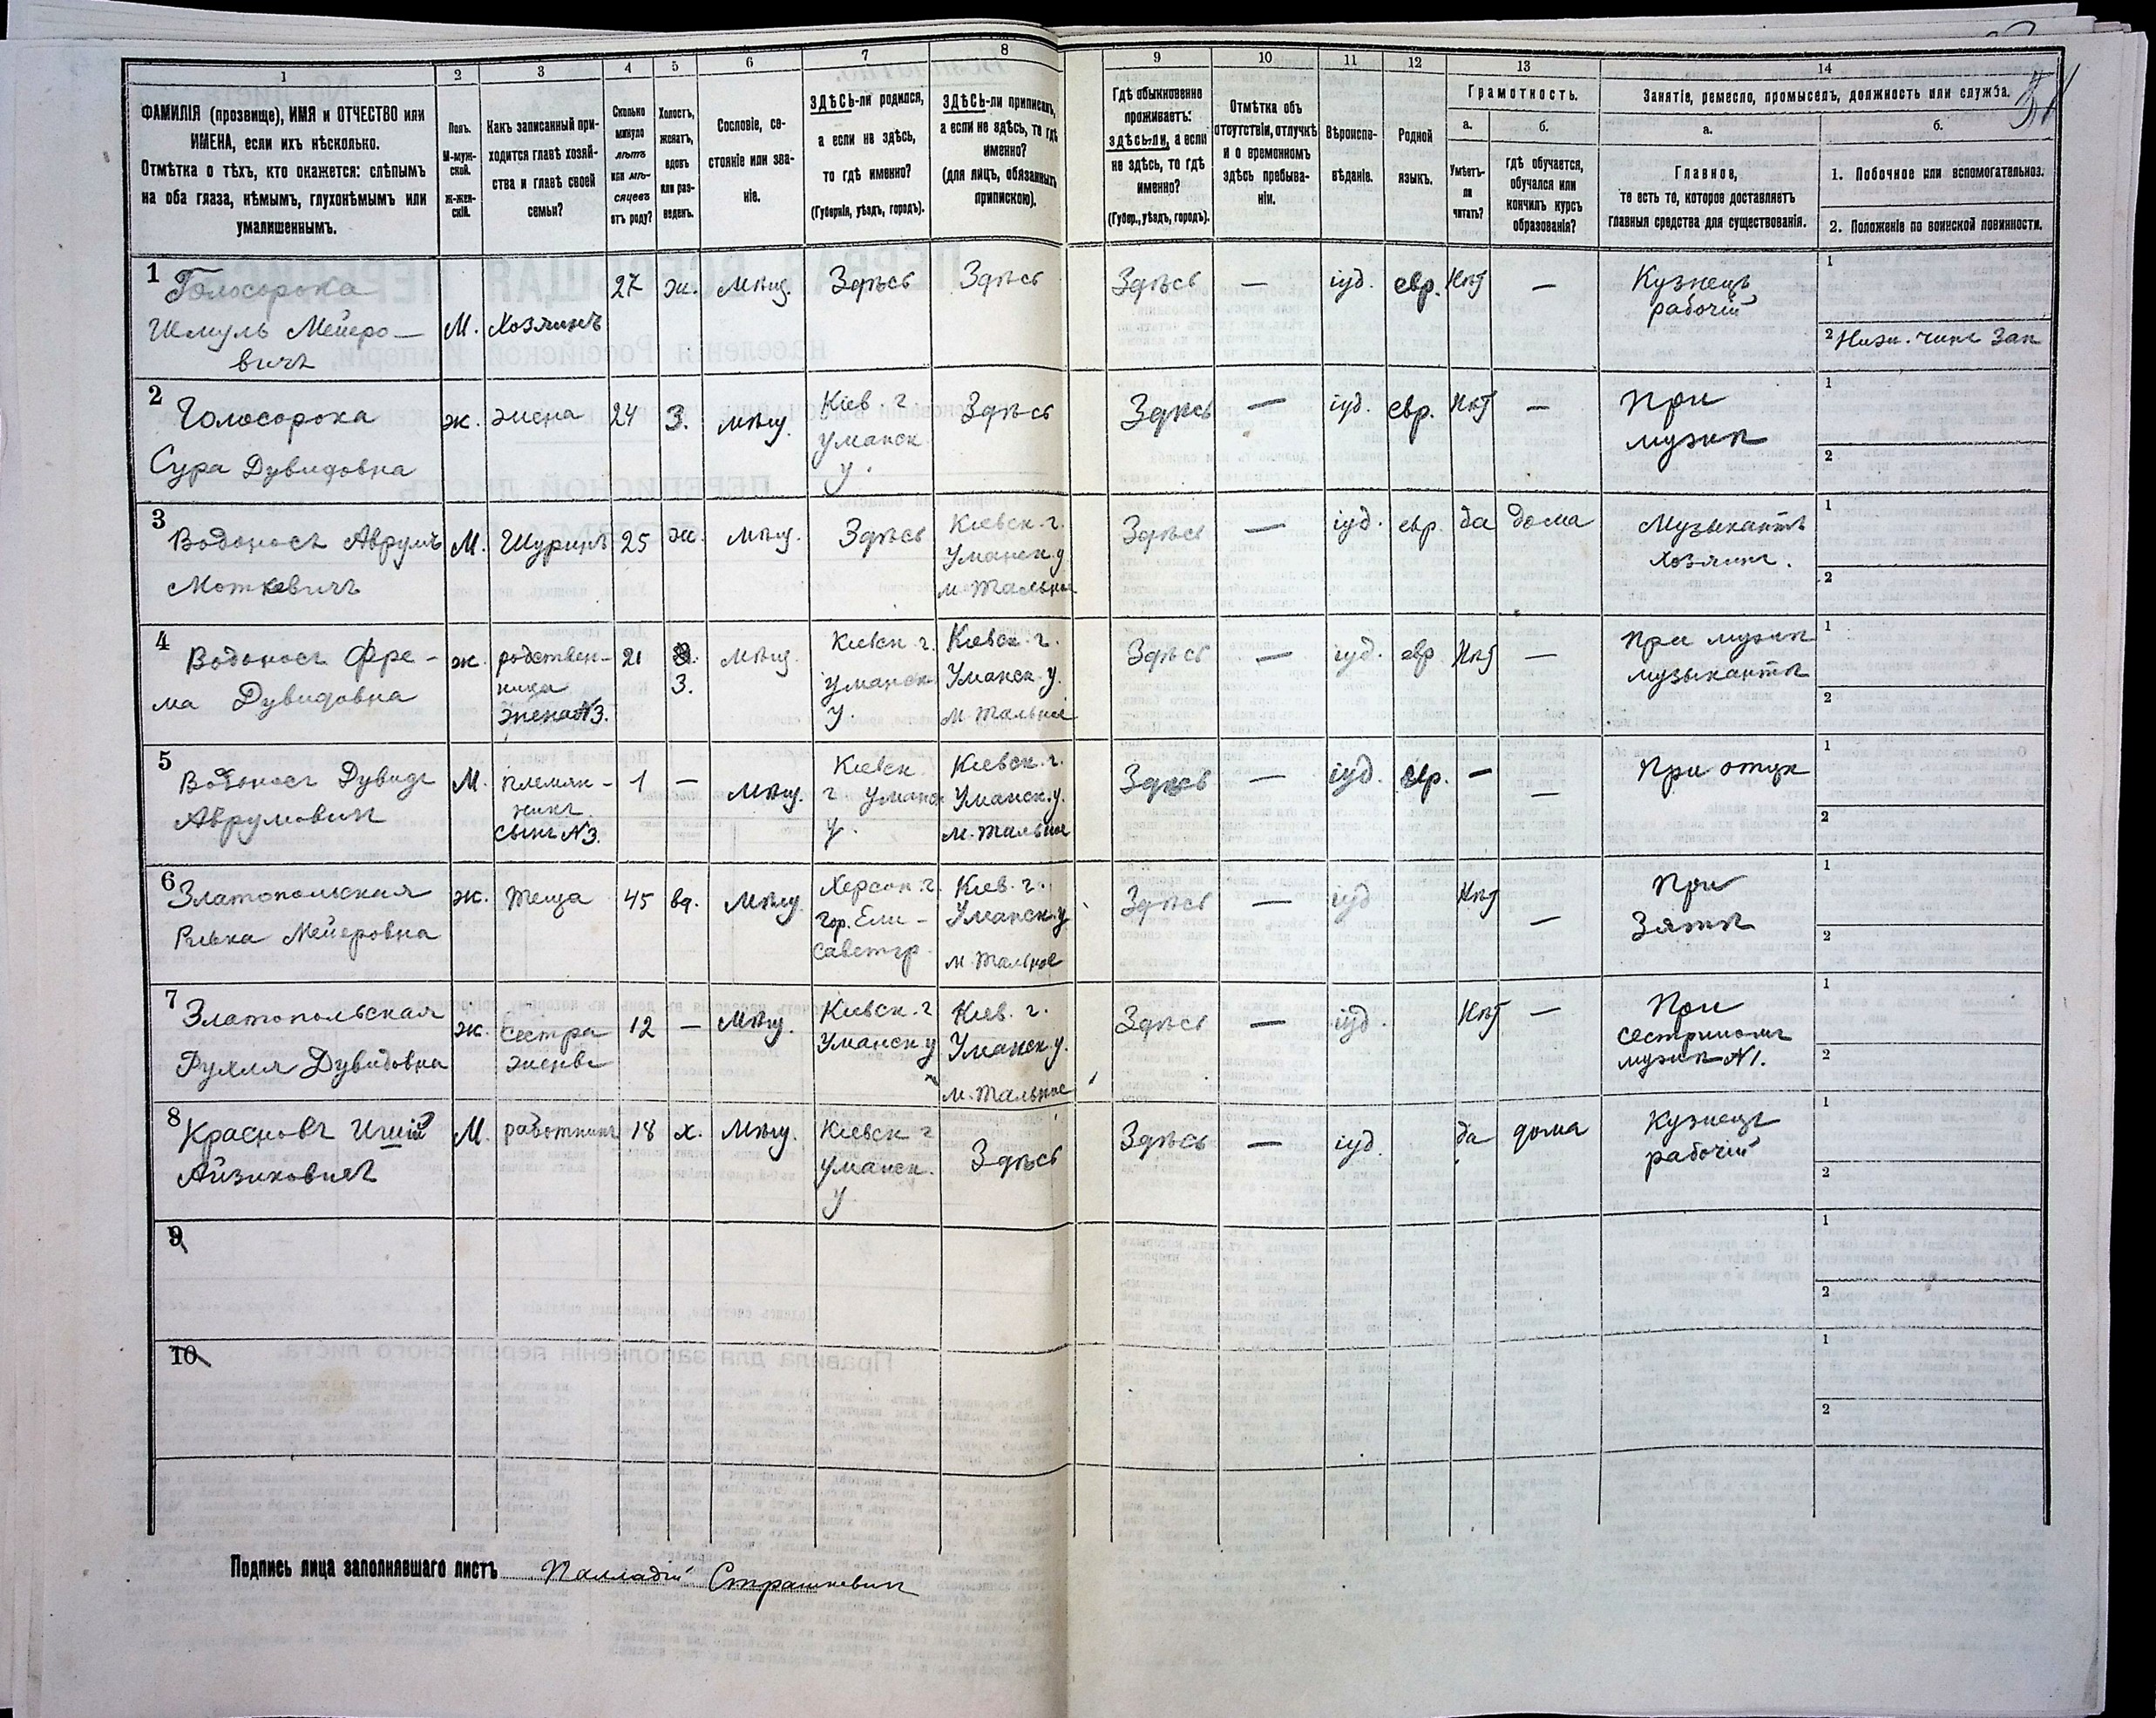 1 2 3 4 5 6 7 8 9 10 11 12 13 14
ФАМИЛІЯ (прозвище), ИМЯ и ОТЧЕСТВО или
ИМЕНА, если ихъ нѣсколько.
Отмѣтка о тѣхъ, кто окажется: слѣпымъ
на оба глаза, нѣмымъ, глухонѣмымъ или
умалишеннымъ.
Полъ.
М-муж-
ской.
Ж-жен-
скій.
Какъ записанный при-
ходится главѣ хозяй-
ства и главѣ своей
семьи?
Сколько
минуло
лѣтъ
или мѣ-
сяцевъ
отъ роду?
Холостъ,
женатъ,
вдовъ
или раз-
веденъ.
Сословіе, со-
стояніе или зва-
ніе.
ЗДѢСЬ-ли родился,
а если не здѣсь,
то гдѣ именно?
(Губернія, уѣздъ, городъ).
ЗДѢСЬ-ли приписанъ,
а если не здѣсь, то гдѣ
именно?
(для лицъ, обязанныхъ
припискою).
Гдѣ обыкновенно
проживаетъ:
здѣсь-ли, а если
не здѣсь, то гдѣ
именно?
(Губер., уѣздъ, городъ).
Отмѣтка объ
отсутствіи, отлучкѣ
и о временномъ
здѣсь пребыва-
ніи.
Вѣроиспо-
вѣданіе.
Родной
языкъ.
Грамотность.
а.
Умѣетъ-
ли
читать?
б.
Гдѣ обучается,
обучался или
кончилъ курсъ
образованія?
Занятіе, ремесло, промыселъ, должность или служба.
а.
Главное,
то есть то, которое доставляетъ
главныя средства для существованія.
б.
1. Побочное или вспомогательное.
2. Положеніе по воинской повинности.
1 Голосорока
Шмуль Мейеро-
вичъ
М. Хозяинъ 27 ж. мѣщ. Здѣсь Здѣсь Здѣсь — іуд. евр. Нѣт —
Кузнецъ
рабочій
1
2 Нижн. чинъ Зап
2 Голосорока
Сура Дувидовна
ж. жена 24 З. мѣщ.
Кіев. г.
Уманск
у.
Здѣсь Здѣсь — іуд. евр. Нѣт —
При
мужѣ
1
2
3 Водоносъ Аврумъ
Моткевичъ
М. Шуринъ 25 ж. мѣщ. Здѣсь
Кіевск. г.
Уманск. у
м. Тальное
Здѣсь — іуд. евр. да дома
Музыкантъ
хозяинъ.
1
2
4 Водоносъ Фре-
ма Дувидовна
ж. родствен-
ница
жена N3.
21 З. мѣщ.
Кіевск. г.
Уманск
у.
Кіевск. г.
Уманск. у.
м. Тальное
Здѣсь — іуд. евр Нѣт —
При мужѣ
музыкантѣ
1
2
5 Водоносъ Дувидъ
Аврумовичъ
М. племян-
никъ
сынъ N3.
1 — мѣщ.
Кіевск
г Уманск
у.
Кіевск. г.
Уманск. у.
м. Тальное
Здѣсь — іуд. евр. — —
При отцѣ
1
2
6 Златопольская
Ривка Мейеровна
ж. теща 45 вд. мѣщ.
Херсон. г.
гор. Ели-
саветгр.
Кіев. г.
Уманск. у
м. Тальное
Здѣсь — іуд Нѣт —
При
Зятѣ
1
2
7 Златопольская
Рухля Дувидовна
ж. Сестра
жены
12 — мѣщ.
Кіевск. г
Уманск. у
Кіев. г.
Уманск. у.
м. Тальное
Здѣсь — іуд. Нѣт —
При
сестриномъ
мужѣ N1.
1
2
8 Красновъ
Айзиковичъ
М. работникъ 18 х. мѣщ.
Кіевск г
Уманск.
у
Здѣсь Здѣсь — іуд. да дома
Кузнецъ
рабочій
1
2
9
1
2
10
1
2
Подпись лица заполнявшаго листъ Палладій Страшкевичъ